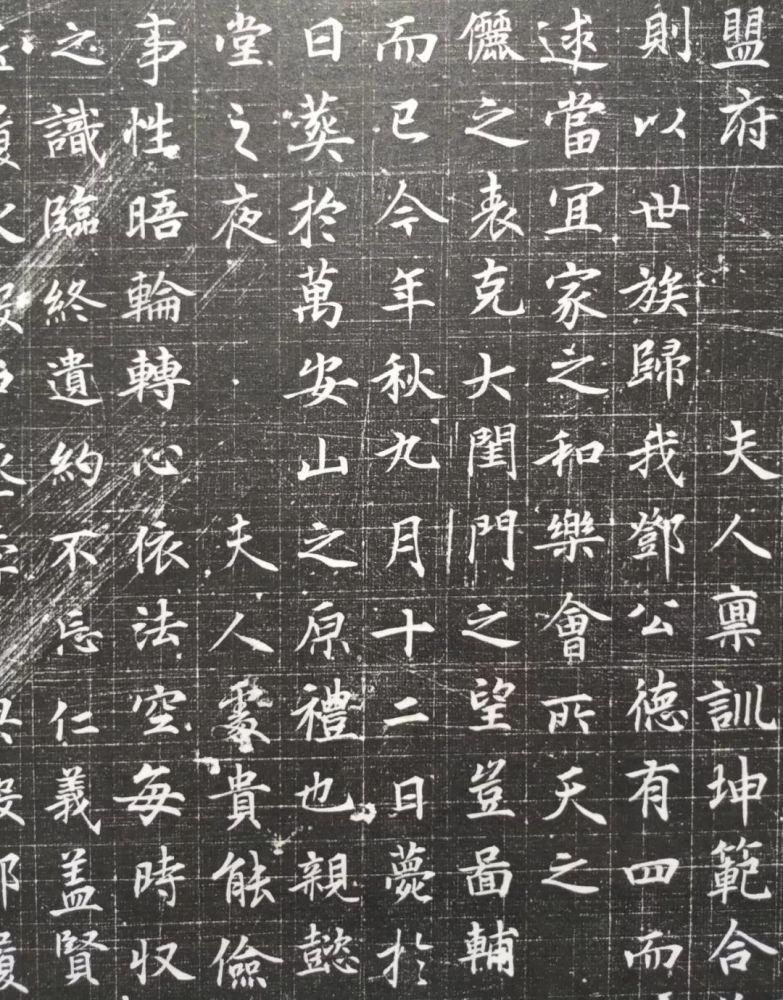 盟府 夫人禀訓坤範合
則以世族歸我鄧公德有四而
逑當宜家之和樂會所天之
儷之表克大閨門之望豈啚輔
而已今年秋九月十二日薨於
日葬於萬安山之原禮也親懿
堂之夜 夫人處貴能儉
事性晤輪轉心依法空每時収
之識臨終遺約不忘仁義盖賢